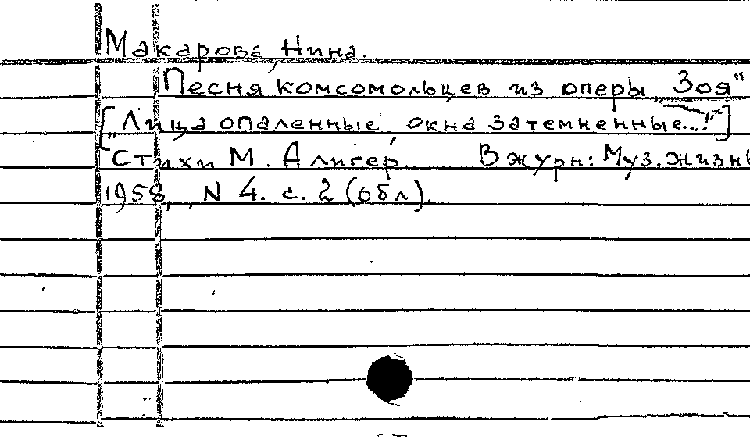 Макарова, Нина.
Песня комсомольцев из оперы „Зоя"
[„Лица опаленные, окна затемненные..."]
Стихи М. Алигер. В журн: Муз. жизнь
1958, N 4. с. 2 (обл).